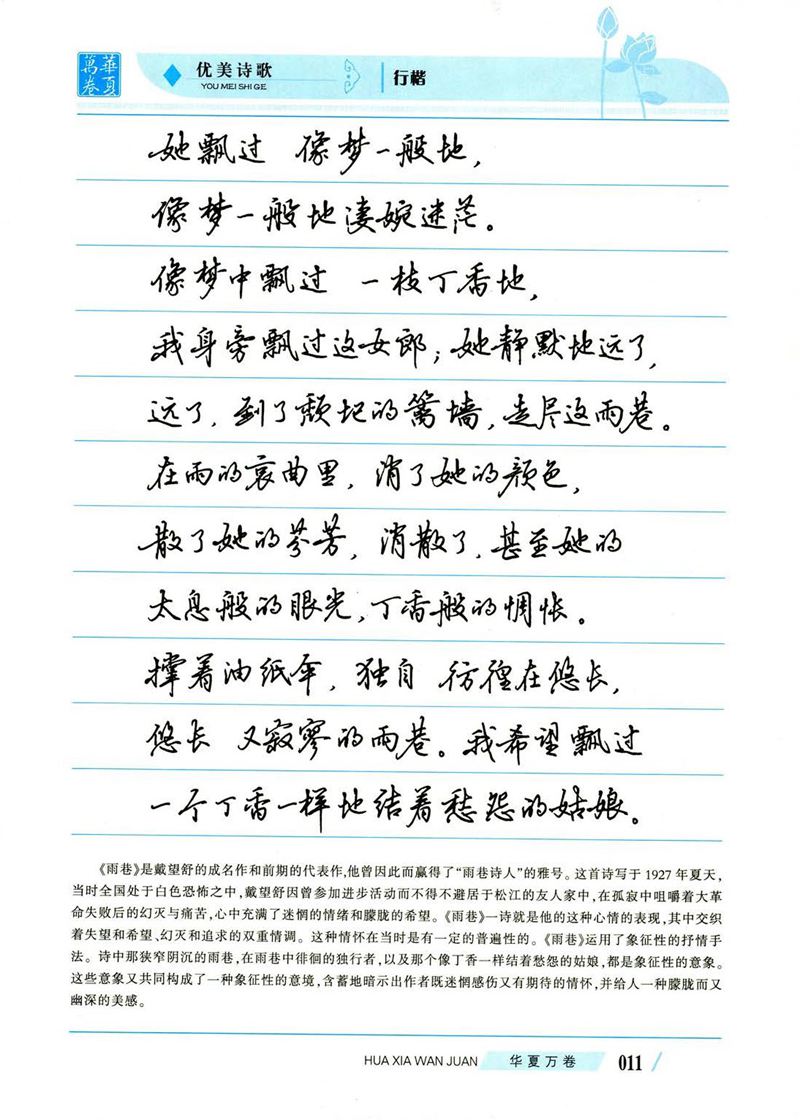 華夏
萬卷
优美诗歌
YOU MEI SHI GE
行楷
她飘过 像梦一般地，
像梦一般地凄婉迷茫。
像梦中飘过 一枝丁香地，
我身旁飘过这女郎；她静默地远了，
远了，到了颓圮的篱墙，走尽这雨巷。
在雨的哀曲里，消了她的颜色，
散了她的芬芳，消散了，甚至她的
太息般的眼光，丁香般的惆怅。
撑着油纸伞，独自 彷徨在悠长，
悠长 又寂寥的雨巷。我希望飘过
一个丁香一样地结着愁怨的姑娘。
《雨巷》是戴望舒的成名作和前期的代表作，他曾因此而赢得了“雨巷诗人”的雅号。这首诗写于1927年夏天，
当时全国处于白色恐怖之中，戴望舒因曾参加进步活动而不得不避居于松江的友人家中，在孤寂中咀嚼着大革
命失败后的幻灭与痛苦，心中充满了迷惘的情绪和朦胧的希望。《雨巷》一诗就是他的这种心情的表现，其中交织
着失望和希望、幻灭和追求的双重情调。这种情怀在当时是有一定的普遍性的。《雨巷》运用了象征性的抒情手
法。诗中那狭窄阴沉的雨巷，在雨巷中徘徊的独行者，以及那个像丁香一样结着愁怨的姑娘，都是象征性的意象。
这些意象又共同构成了一种象征性的意境，含蓄地暗示出作者既迷惘感伤又有期待的情怀，并给人一种朦胧而又
幽深的美感。
HUA XIA WAN JUAN 华夏万卷 011